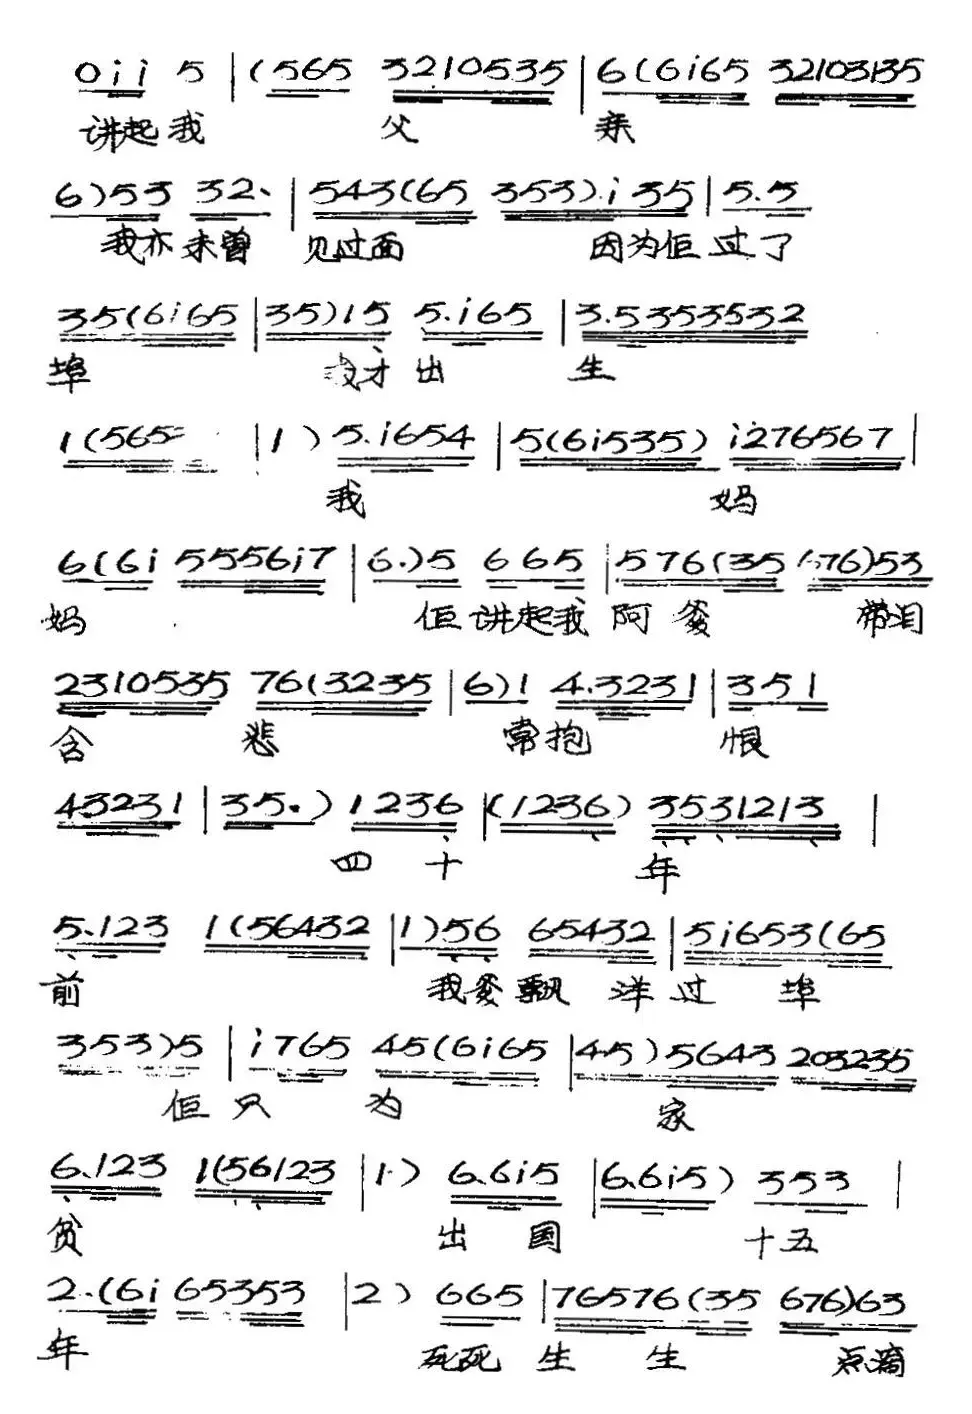 0 i i 5 | (565 3210535 | 6(6i65 32103135
讲起我 父 亲
6)53 32. | 543(65 353).i 35 | 5.5
我亦未曾 见过面 因为佢过了
35(6i65 | 35)15 5.i65 | 3.5353532
埠 我才出 生
1(565 | 1) 5.i654 | 5(6i535) i276567 |
我 妈
6(6i 5556i7 | 6.)5 665 | 576(35 676)53
妈 佢讲起我 阿爹 带泪
2310535 76(3235 | 6)1 4.3231 | 351
含 悲 常抱 恨
43231 | 35.) 1236 | (1236) 3531213 |
四十 年
5.123 1(56432 | 1)56 65432 | 5i653(65
前 我爹飘 洋过 埠
353)5 | i765 45(6i65 | 45)5643 203235
佢只 为 家
6.123 1(56123 | 1.) 6.6i5 | 6.6i5) 353 |
贫 出 国 十五
2.(6i 65353 | 2) 665 | 76576(35 676)63
年 死死 生 生 点滴